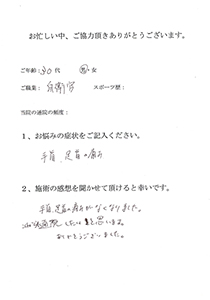 お忙しい中、ご協力頂きありがとうございます。
ご年齢:30代 男・女
ご職業: 自衛官 スポーツ歴:
当院の通院の制度:
1、お悩みの症状をご記入ください。
手首、足首の痛み
2、施術の感想を聞かせて頂けると幸いです。
手首、足首の痛みがなくなりました。
通院したいと思います。
ありがとうございました。